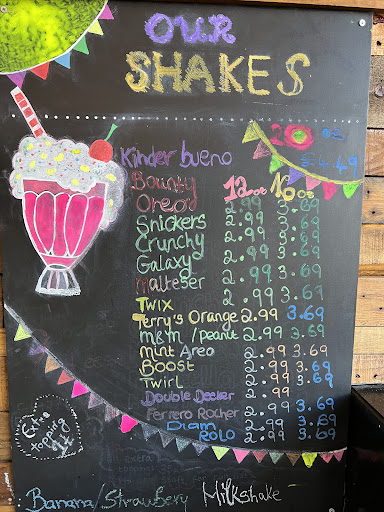 OUR
SHAKES
20 oz
£4.49
Kinder bueno
Bounty 12oz 16oz
Oreo 2.99 3.69
Snickers 2.99 3.69
Crunchy 2.99 3.69
Galaxy 2.99 3.69
Malteser 2.99 3.69
Twix 2.99 3.69
Terry's Orange 2.99 3.69
M&M/peanut 2.99 3.69
Mint Areo 2.99 3.69
Boost 2.99 3.69
Twirl 2.99 3.69
Double Decker 2.99
Ferrero Rocher 2.99 3.69
Diam 2.99 3.69
Rolo 2.99 3.69
Extra
topping
£1
Banana/Strawbery Milkshake